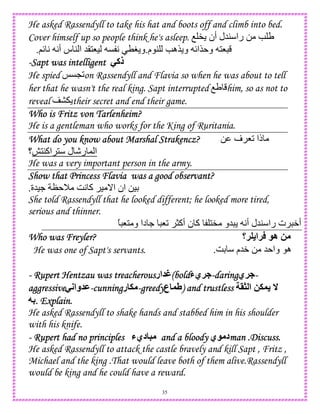 He asked Rassendyll to take his hat and boots off and climb into bed.
Cover himself up so people think he's asleep. طلب من راسندل أن يخلع
قبعته وحذائه ويذهب للنوم.ويغطي نفسه ليعتقد الناس أنه نائم.
-Sapt was intelligent ذكي
He spied تجسس on Rassendyll and Flavia so when he was about to tell
her that he wasn't the real king. Sapt interrupted قاطع him, so as not to
reveal يكشف their secret and end their game.
Who is Fritz von Tarlenheim?
He is a gentleman who works for the King of Ruritania.
What do you know about Marshal Strakencz? ماذا تعرف عن
المارشال ستراكنتش؟
He was a very important person in the army.
Show that Princess Flavia was a good observant?
بين ان الامير كانت ملاحظة جيدة.
She told Rassendyll that he looked different; he looked more tired,
serious and thinner.
أخبرت راسندل أنه يبدو مختلفا كان أكثر تعبا جادا ومتعباً
Who was Freyler? من هو فرايلر؟
He was one of Sapt's servants. هو واحد من خدم سابت.
- Rupert Hentzau was treacherous غدار (bold جريء-daring جريء-
aggressive عدواني-cunning مكار-greedy طماع) and trustless لا يمكن الثقة
به. Explain.
He asked Rassendyll to shake hands and stabbed him in his shoulder
with his knife.
- Rupert had no principles مباديء and a bloody دموي man .Discuss.
He asked Rassendyll to attack the castle bravely and kill Sapt , Fritz ,
Michael and the king .That would leave both of them alive.Rassendyll
would be king and he could have a reward.
35